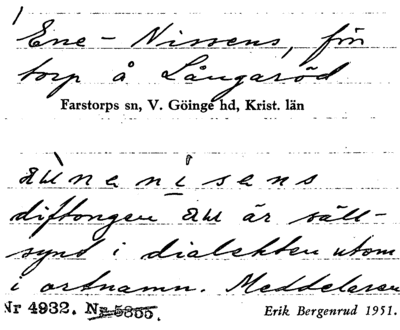 Ene-Nissens, för
torp å Långaröd
Farstorps sn, V. Göinge hd, Krist. län
nanisens
diftongen är säll-
synt i dialekten utom
i ortnamn. Meddelaren
Nr 4932. Nr 5855.
Erik Bergenrud 1951.